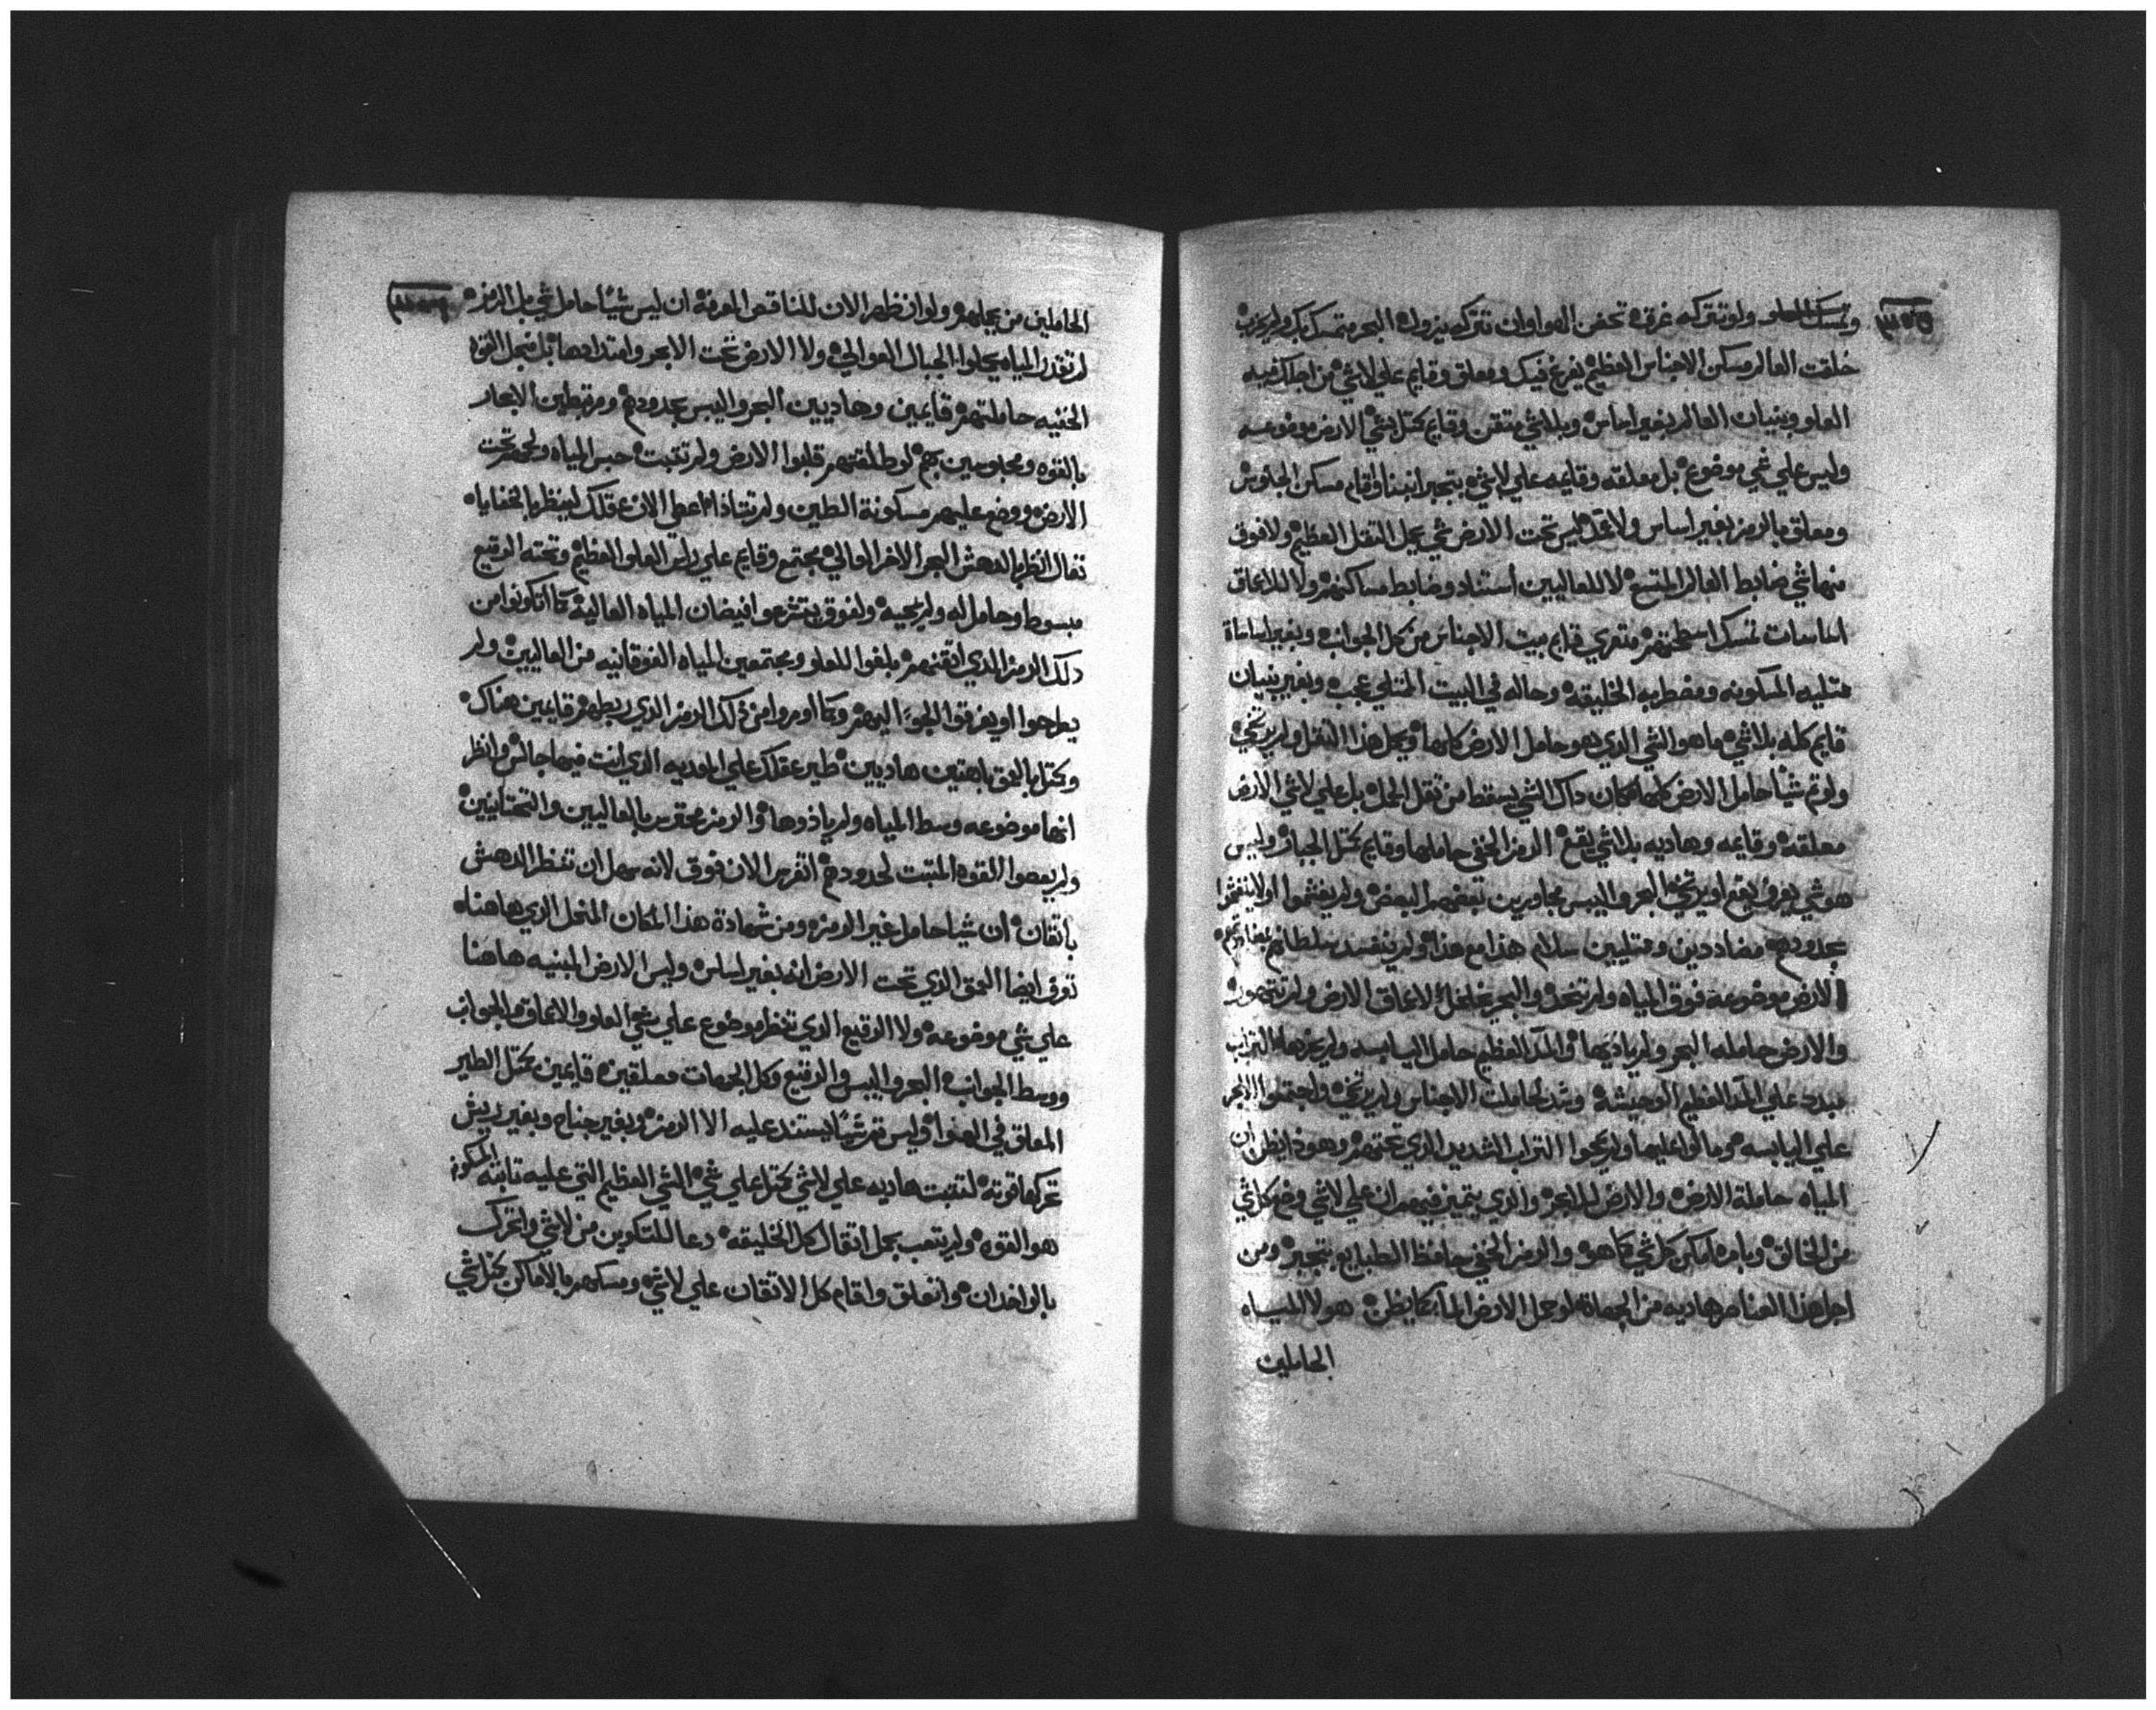 وتمسك العلو ولو تتركه غرق تحفن الهوا وان تتركه يزول البحر متمسك بك ولم يخرب
خلقت العالم مسكن الاجناس العظيم يفرغ فيك ومعلق وقايم علي لاشي من اجلك فيه
العلو وبنيان العالم بغير اساس وبلاشي متقن وقايم كتل شي الارض موضوعه
وليس علي شي موضوع بل معلقه وقايمه علي لاشي بتجبر اقام مسكن الجلوس
ومعلق بالرمز بغير اساس ولا عمد ليس تحت الارض شي يحمل الثقل العظيم ولا فوق
منها شي ضابط العالم المتسع لا للعاليين استناد وضابط مساكنهم ولا للاعماق
اساسات تمسك اسطحتهم متعري قايم بيت الاجناس من كل الجوانب وبغير اساساة
ممتليه المسكونه ومضطربه الخليقه وحاله في البيت الممتلي عجب وبغير بنيان
قايم كله بلاشي ما هو الشي الذي هو حامل الارض كلها ويحمل هذا الثقل ولم يرتخي
ولو تم شيأ حامل الارض كلها لكان داك الشي يسقط من ثقل الحمل بل علي لاشي الارض
معلقه وقايمه وهاديه بلاشي يقع الرمز الخفي حاملها وقايم كتل الجبار وليس
هو شي يعرف يقع او يرتخي البحر واليبس مجاورين بعضهم البعض ولم يغشموا او لا ينغشموا
بحدودهم مضاددين وممتليين سلام هذا مع هذا ولم ينفسد سلطانهم
الارض موضوعة فوق المياه ولم تنحل والبحر خلخل لاعماق الارض ولم تتهور
والارض حامله البحر ولم ياذيها والمآ العظيم حامل اليابسه ولم يخرها التراب
مبدد علي المآ العظيم الوحيشه وشد لحاملات الاجناس ولم يرتخي واجتمعوا الابحر
علي اليابسه وما لوا عليها ولم يمحوا التراب الشديد الذي تحتهم وهوذا يظن ان
المياه حاملة الارض والارض للابحر والذي يتميز فيهم ان علي لاشي وضع كل شي
من الخالق وبامره امكن كل شي كما هو والرمز الخفي حافظ الطبايع بتجبر ومن
اجل هذا العناصر هاديه من الجهاة لو حمل الارض المآ كما يظن هولا المياه
الحاملين
الحاملين من يحملهم ولو ان ظهر الان للناقص المعرفة ان ليس شيأ حامل شي بل الرمز
لم تقدر المياه يحملوا الجبال العوالي ولا الارض تحت الابحر وامتدادها بل تحمل القوا
الخفيه حاملتهم قايمين وهاديين البحر واليبس بحدودهم ومرتبطين الابحار
بالقوه ومحبوسين بهم لو طلقتهم قلبوا الارض ولم تتبت حبس المياه ولجمهم تحت
الارض ووضع عليهم مسكونة الطين ولم تتاذا اعطي الان عقلك لينظر بالخفاياه
تعال انظر بالدهش البحر الاخر العالي مجتمع وقايم علي راس العلو العظيم وتحته الرقيع
مبسوط وحامل له ولم يحيه ولفوق يتشرعوا فيضان المياه العاليه كما اتاكونوا من
دلك الرمز الذي اتقنهم بلغوا للعلو ومجتمعين المياه الفوقانيه من العاليين ولم
يطرحوا او يغرقوا الجو اليهم وكما اومروا من ذلك الرمز الذي ربطهم قايمين هناك
وكتل بالعمق باهتين هاديين طير عقلك علي المديه الذي انت فيها جالس وانظر
انها موضوعه وسط المياه ولم ياذوها والرمز محترس بالعاليين والتحتانيين
ولم يعصوا القوه المتبت لحدودهم اتفرس الان فوق لانه سهل ان تنظر الدهش
باتقان ان شيا حامل غير الرمز ومن شهادة هذا المكان المنحل الذي هاهناه
توف ايضا العمق الذي تحت الارض انه بغير اساس وليس الارض المبنيه هاهنا
علي شي موضوعه ولا الرقيع الذي تنظر موضوع علي شي العلو والاعماق والجوانب
ووسط الجوانب البحر واليبس والرقيع وكل الجهات معلقين قايمين كتل الطير
المعلق في الهوا وليس تم شيأ يستند عليه الا الرمز وبغير جناح وبغير ريش
تحركها قوته لتتبت هاديه علي لاشي كتل علي شي الشي العظيم التي عليه تابته المسكونه
هو القوه ولم يتعب بحمل اتقال كل الخليقه دعا للتكوين من لاشي واتحرك
بالواخدان وانعلق واقام كل الاتقان علي لاشي ومسكهم بالاماكن كتل شي